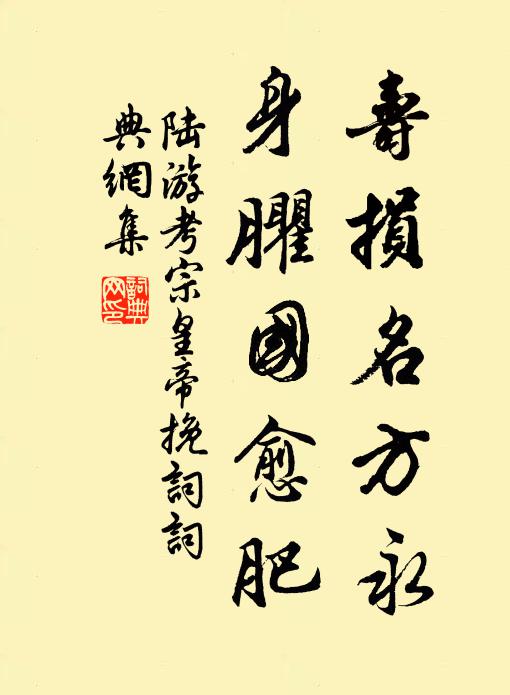 壽損名方永
身臞國愈肥
陸游考宗皇帝挽詞詞
典網集
詞典網印